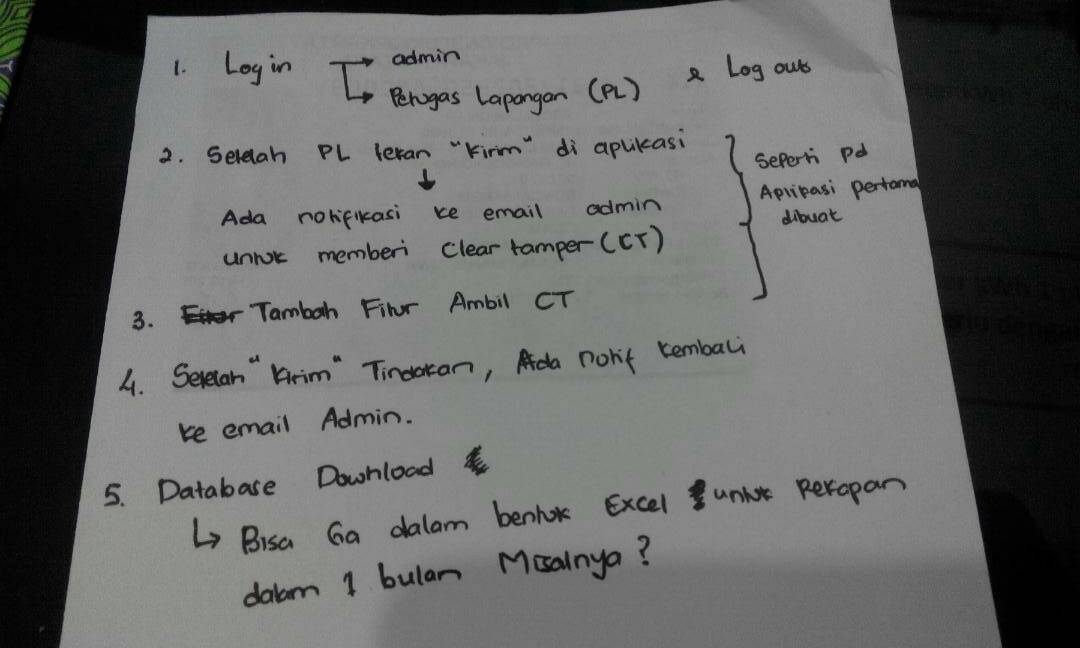 1. Login → admin
↳ Petugas Lapangan (PL) & Log out
2. Setelah PL tekan "Kirim" di aplikasi
↓
Ada notifikasi ke email admin
untuk memberi Clear tamper (CT)
Seperti pd
Aplikasi pertama
dibuat
3. Fitur Tambah Fitur Ambil CT
4. Setelah "Kirim" Tindakan, Ada notif kembali
ke email Admin.
5. Database Download
↳ Bisa Ga dalam bentuk Excel untuk Rekapan
dalam 1 bulan Misalnya?